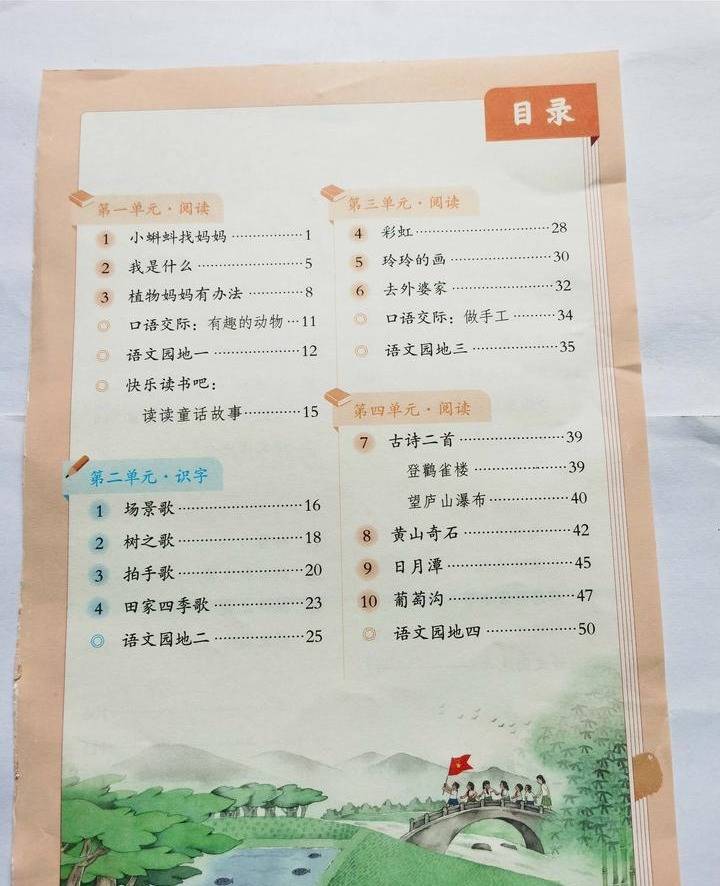 目录
第一单元·阅读
1 小蝌蚪找妈妈 ………………1
2 我是什么 ………………5
3 植物妈妈有办法 …………8
◎ 口语交际：有趣的动物…11
◎ 语文园地一 ………………12
◎ 快乐读书吧：
读读童话故事…………15
第二单元·识字
1 场景歌 ………………16
2 树之歌 ………………18
3 拍手歌 ………………20
4 田家四季歌 ………………23
◎ 语文园地二 ………………25
第三单元·阅读
4 彩虹 ………………28
5 玲玲的画 ………………30
6 去外婆家 ………………32
◎ 口语交际：做手工 …………34
◎ 语文园地三 ………………35
第四单元·阅读
7 古诗二首 ………………39
登鹳雀楼 ………………39
望庐山瀑布 ………………40
8 黄山奇石 ………………42
9 日月潭 ………………45
10 葡萄沟 ………………47
◎ 语文园地四 ………………50